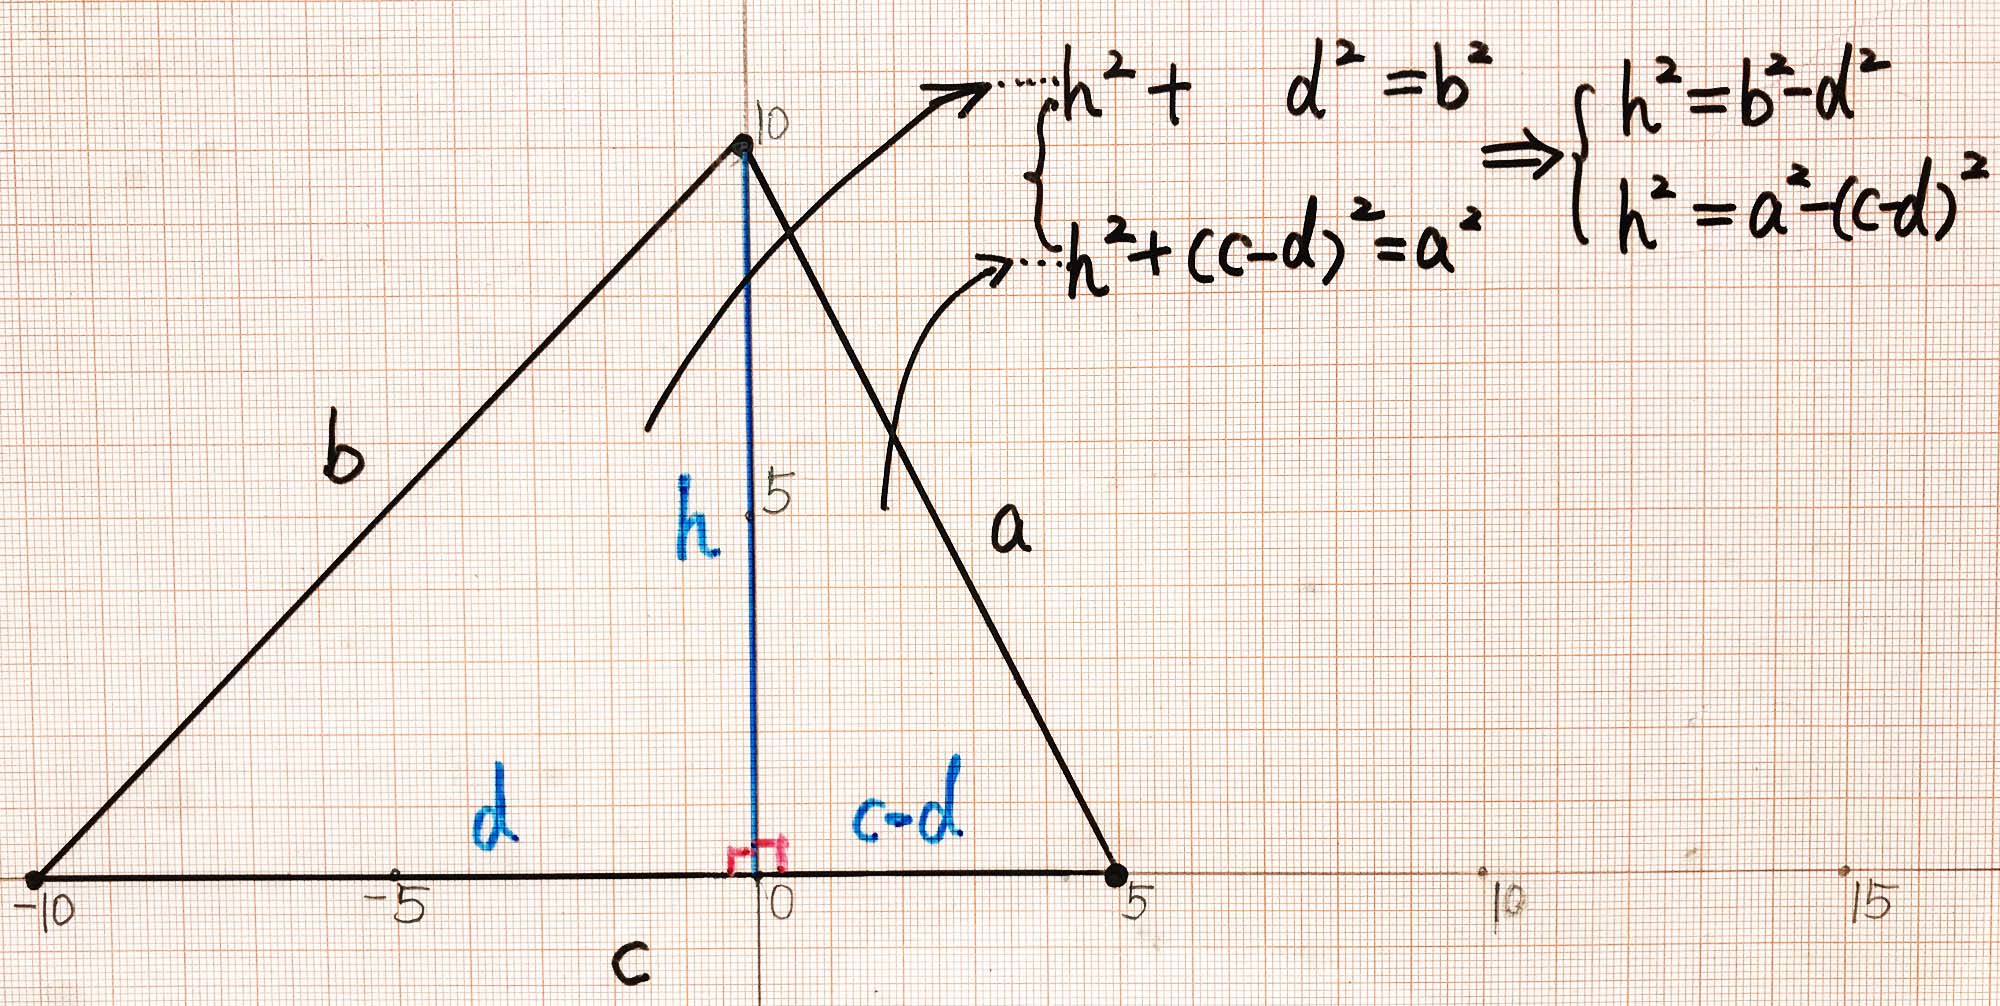 h² + d² = b²
h² + (c-d)² = a²
⇒
h² = b² - d²
h² = a² - (c-d)²
10
b
h
5
a
d
c-d
-10
-5
0
5
10
15
c